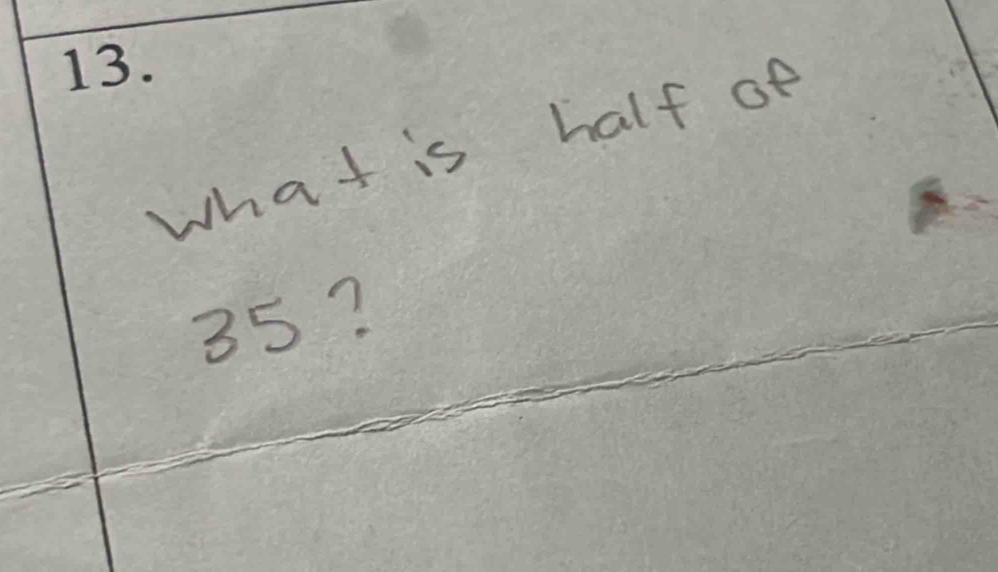 13.
What is half of
35?